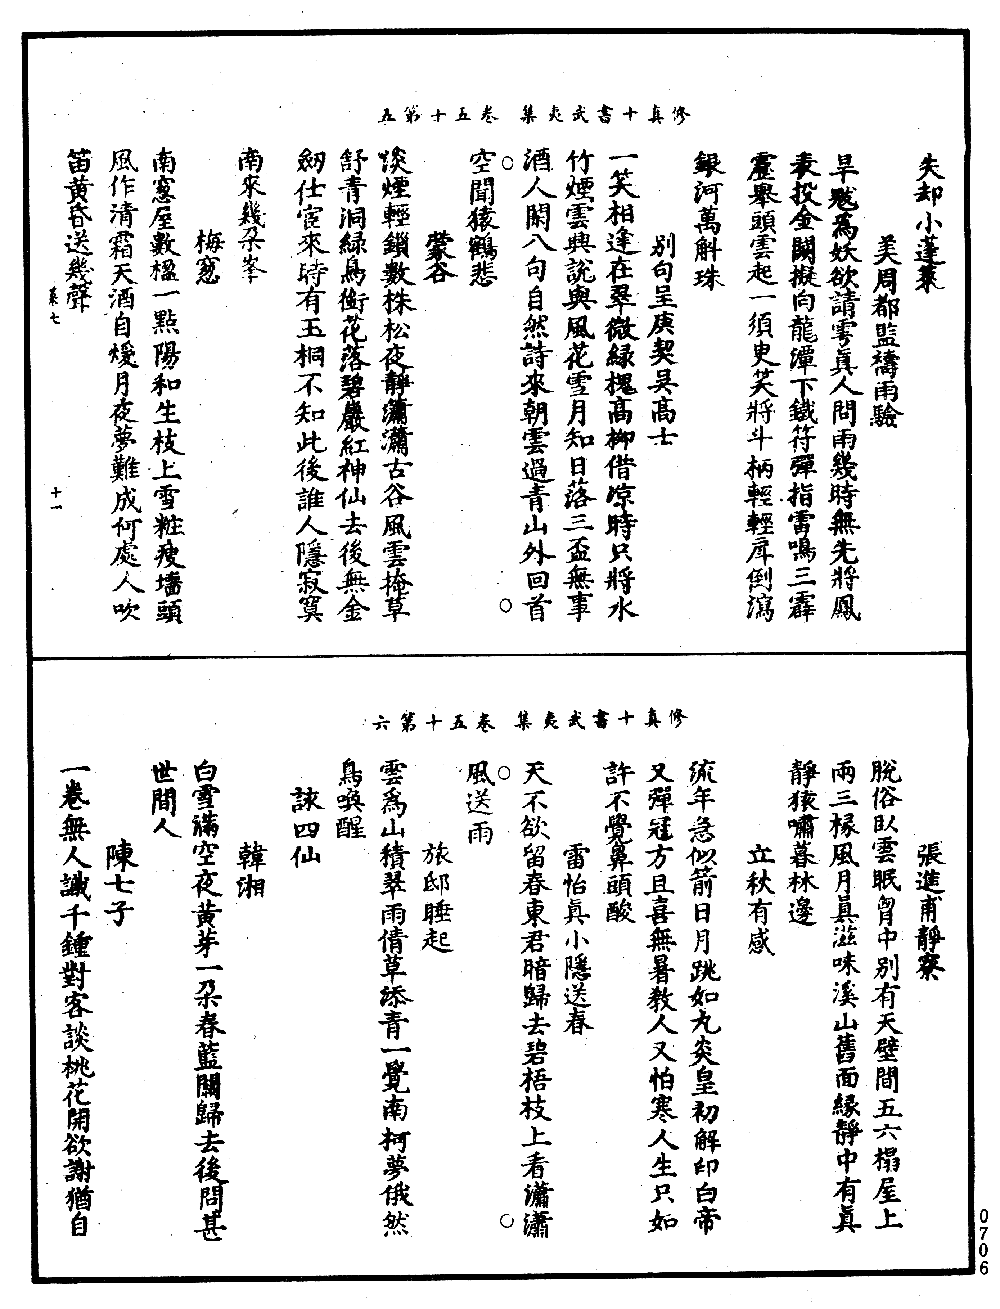 修真十書武夷集卷五十第五
失却小蓬萊
美周都監禱雨驗
旱魃為妖欲請雩真人問雨幾時無先將鳳
表投金闕擬向龍潭下鐵符彈指雷鳴三霹
靂舉頭雲起一須臾笑將斗柄輕輕戽倒瀉
銀河萬斛珠
別句呈庚契吳高士
一笑相逢在翠微緑槐高柳借凉時只將水
竹煙雲興說與風花雪月知日落三盃無事
酒人閑八句自然詩來朝雲過青山外回首
○ ○
空聞猿鶴悲
蒙谷
淡煙輕鎖數株松夜靜瀟瀟古谷風雲掩草
舒青洞緑鳥銜花落碧巖紅神仙去後無金
劒仕宦來時有玉桐不知此後誰人隱寂寞
南來幾朶峯
梅窓
南窓屋數楹一點陽和生枝上雪粧瘦墻頭
風作清霜天酒自煖月夜夢難成何處人吹
笛黃昏送幾聲
羕七 十一
修真十書武夷集卷五十第六
張進甫靜寮
脫俗臥雲眠胷中別有天壁間五六榻屋上
兩三椽風月真滋味溪山舊面緣靜中有真
靜猿嘯暮林邊
立秋有感
流年急似箭日月跳如丸炎皇初解印白帝
又彈冠方且喜無暑教人又怕寒人生只如
許不覺鼻頭酸
雷怡真小隱送春
天不欲留春東君暗歸去碧梧枝上看瀟瀟
○ ○
風送雨
旅邸睡起
雲為山積翠雨倩草添青一覺南柯夢俄然
鳥喚醒
詠四仙
韓湘
白雪滿空夜黃芽一朶春藍關歸去後問甚
世間人
陳七子
一卷無人識千鍾對客談桃花開欲謝猶自
0706